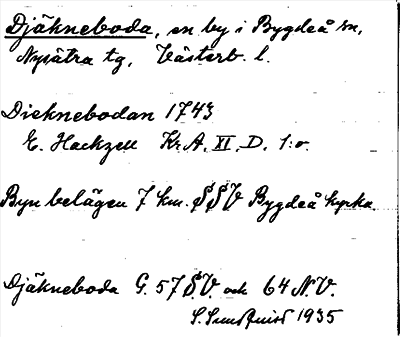 Djäkneboda, en by i Bygdeå sn,
Nysätra tg, Västerb. l.
Dieknebodan 1743
E. Hackzell Kr. A. XI. D. 1:o.
Byn belägen 7 km. SSV Bygdeå kyrka.
Djäkneboda G. 57 S.V. och 64 N.V.
S. Sundquist 1935